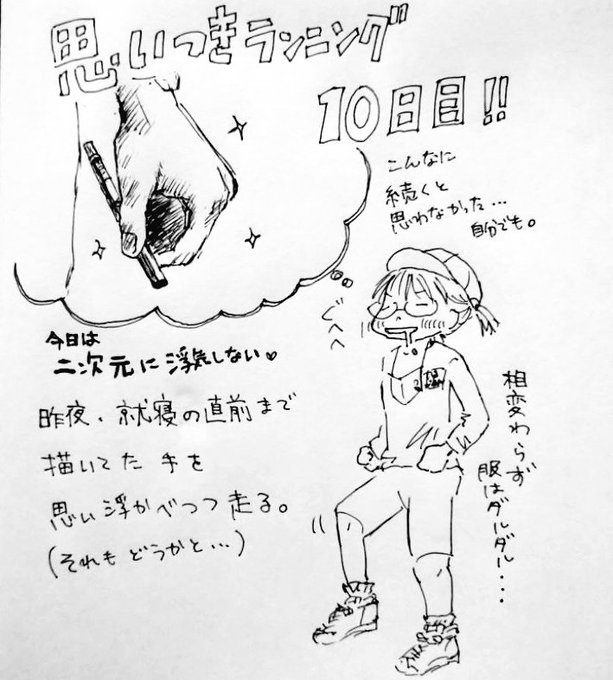 思いつきランニング
10日目!!
こんなに
続くと
思わなかった…
自分でも。
でへへ
今日は
二次元に浮気しない♡
昨夜、就寝の直前まで
描いてた手を
思い浮かべつつ走る。
(それもどうかと…)
相変わらず
服はダルダル…